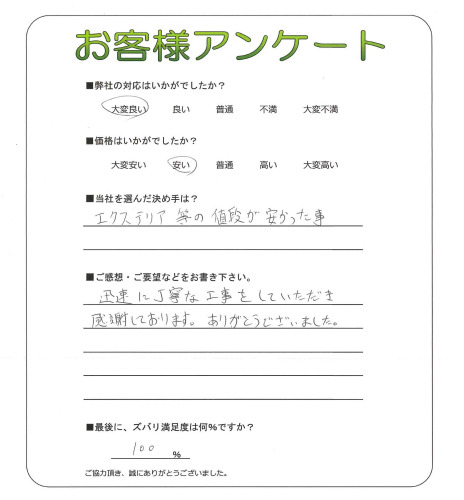 お客様アンケート
■弊社の対応はいかがでしたか？
大変良い 良い 普通 不満 大変不満
■価格はいかがでしたか？
大変安い 安い 普通 高い 大変高い
■当社を選んだ決め手は？
エクステリア等の値段が安かった事
■ご感想・ご要望などをお書き下さい。
迅速に丁寧な工事をしていただき
感謝しております。ありがとうございました。
■最後に、ズバリ満足度は何％ですか？
100 ％
ご協力頂き、誠にありがとうございました。